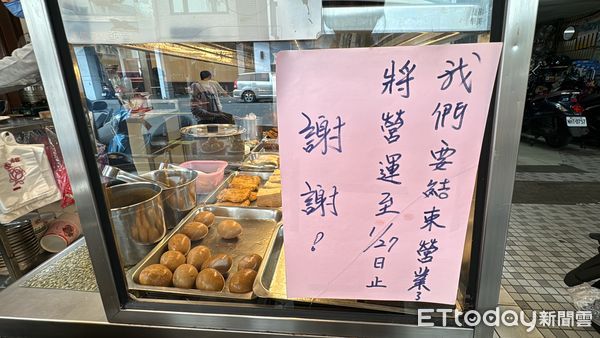 我們要結束營業了
將營運至1/27日止
謝謝!
ETtoday新聞雲